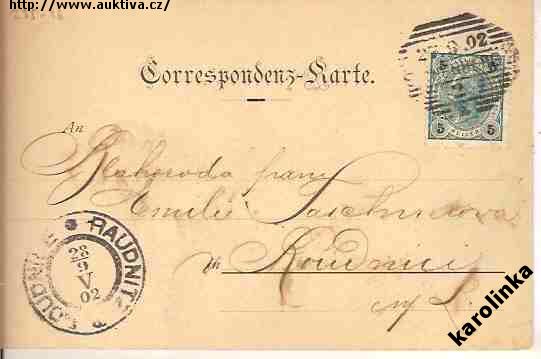 http://www.auktiva.cz/
Correspondenz-Karte.
An
Blahorodá paní
Emilie
in Roudnici
n/L.
RAUDNITZ
ROUDNICE
23
9
V
02
02
5 5
5 5
karolinka